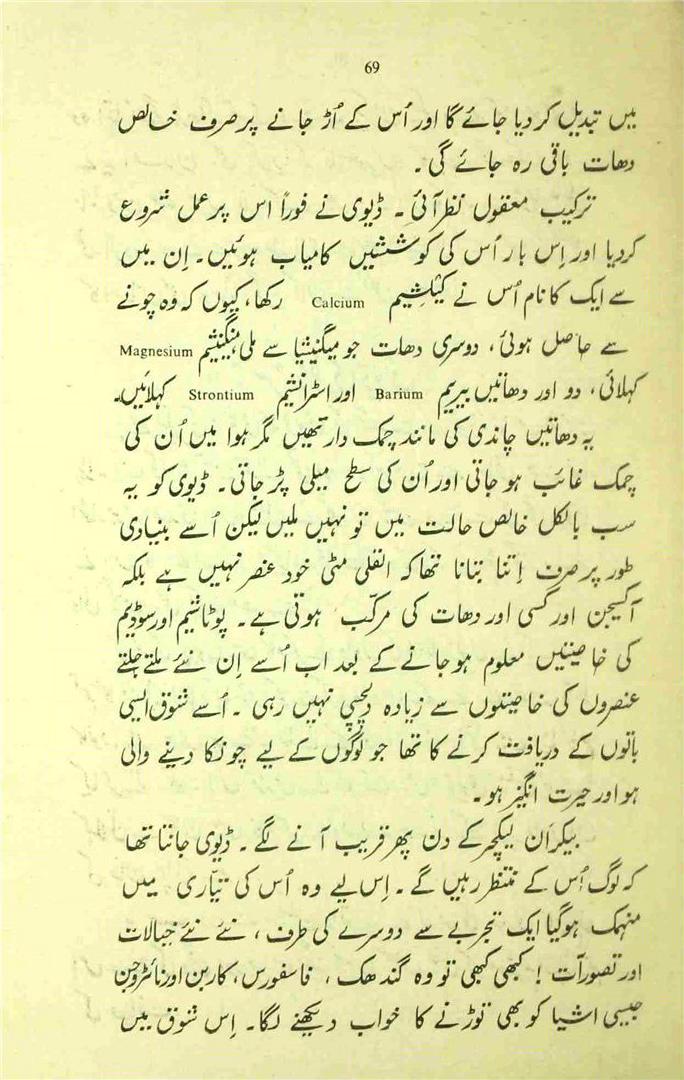 69
میں تبدیل کر دیا جائے گا اور اُس کے اُڑ جانے پر صرف خالص
دھات باقی رہ جائے گی۔
ترکیب معقول نظر آئی۔ ڈیوی نے فوراً اس پر عمل شروع
کر دیا اور اِس بار اُس کی کوششیں کامیاب ہوئیں۔ اِن میں
سے ایک کا نام اُس نے کیلشیم Calcium رکھا، کیوں کہ وہ چونے
سے حاصل ہوئی، دوسری دھات جو میگنیشیا سے ملی، میگنیشیم Magnesium
کہلائی، دو اور دھاتیں بیریم Barium اور اسٹرانشیم Strontium کہلائیں۔
یہ دھاتیں چاندی کی مانند چمک دار تھیں مگر ہوا میں اُن کی
چمک غائب ہو جاتی اور اُن کی سطح میلی پڑ جاتی۔ ڈیوی کو یہ
سب بالکل خالص حالت میں تو نہیں ملیں لیکن اُسے بنیادی
طور پر صرف اِتنا بتانا تھا کہ القلی مٹی خود عنصر نہیں ہے بلکہ
آکسیجن اور کسی اور دھات کی مرکّب ہوتی ہے۔ پوٹاشیم اور سوڈیم
کی خاصیتیں معلوم ہو جانے کے بعد اب اُسے اِن نئے ملتے جلتے
عنصروں کی خاصیتوں سے زیادہ دلچسپی نہیں رہی۔ اُسے شوق ایسی
باتوں کے دریافت کرنے کا تھا جو لوگوں کے لیے چونکا دینے والی
ہو اور حیرت انگیز ہو۔
بیکراَن لیکچر کے دن پھر قریب آنے لگے۔ ڈیوی جانتا تھا
کہ لوگ اُس کے منتظر رہیں گے۔ اِس لیے وہ اُس کی تیّاری میں
منہمک ہو گیا ایک تجربے سے دوسرے کی طرف، نئے نئے خیالات
اور تصورات! کبھی کبھی تو وہ گندھک، فاسفورس، کاربن اور نائٹروجن
جیسی اشیا کو بھی توڑنے کا خواب دیکھنے لگا۔ اِس شوق میں